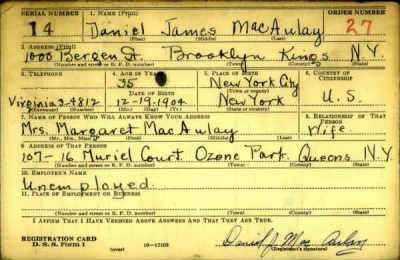 SERIAL NUMBER 1. NAME (Print) ORDER NUMBER
14 Daniel James MacAulay 27
(First) (Middle) (Last)
2. ADDRESS (Print)
1000 Bergen St. Brooklyn Kings N.Y.
(Number and street or R. F. D. number) (Town) (County) (State)
3. TELEPHONE 4. AGE IN YEARS 5. PLACE OF BIRTH 6. COUNTRY OF CITIZENSHIP
35 New York City
DATE OF BIRTH (Town or county)
Virginia 3-4812 12-19-1904 New York U.S.
(Exchange) (Number) (Mo.) (Day) (Yr.) (State or country)
7. NAME OF PERSON WHO WILL ALWAYS KNOW YOUR ADDRESS 8. RELATIONSHIP OF THAT PERSON
Mrs. Margaret MacAulay Wife.
(Mr., Mrs., Miss) (First) (Middle) (Last)
9. ADDRESS OF THAT PERSON
107-16 Muriel Court. Ozone Park. Queens N.Y.
(Number and street or R. F. D. number) (Town) (County) (State)
10. EMPLOYER'S NAME
Unemployed.
11. PLACE OF EMPLOYMENT OR BUSINESS
(Number and street or R. F. D. number) (Town) (County) (State)
I AFFIRM THAT I HAVE VERIFIED ABOVE ANSWERS AND THAT THEY ARE TRUE.
REGISTRATION CARD
D. S. S. Form 1 (over) 16-17105 Daniel J. MacAulay
(Registrant's signature)